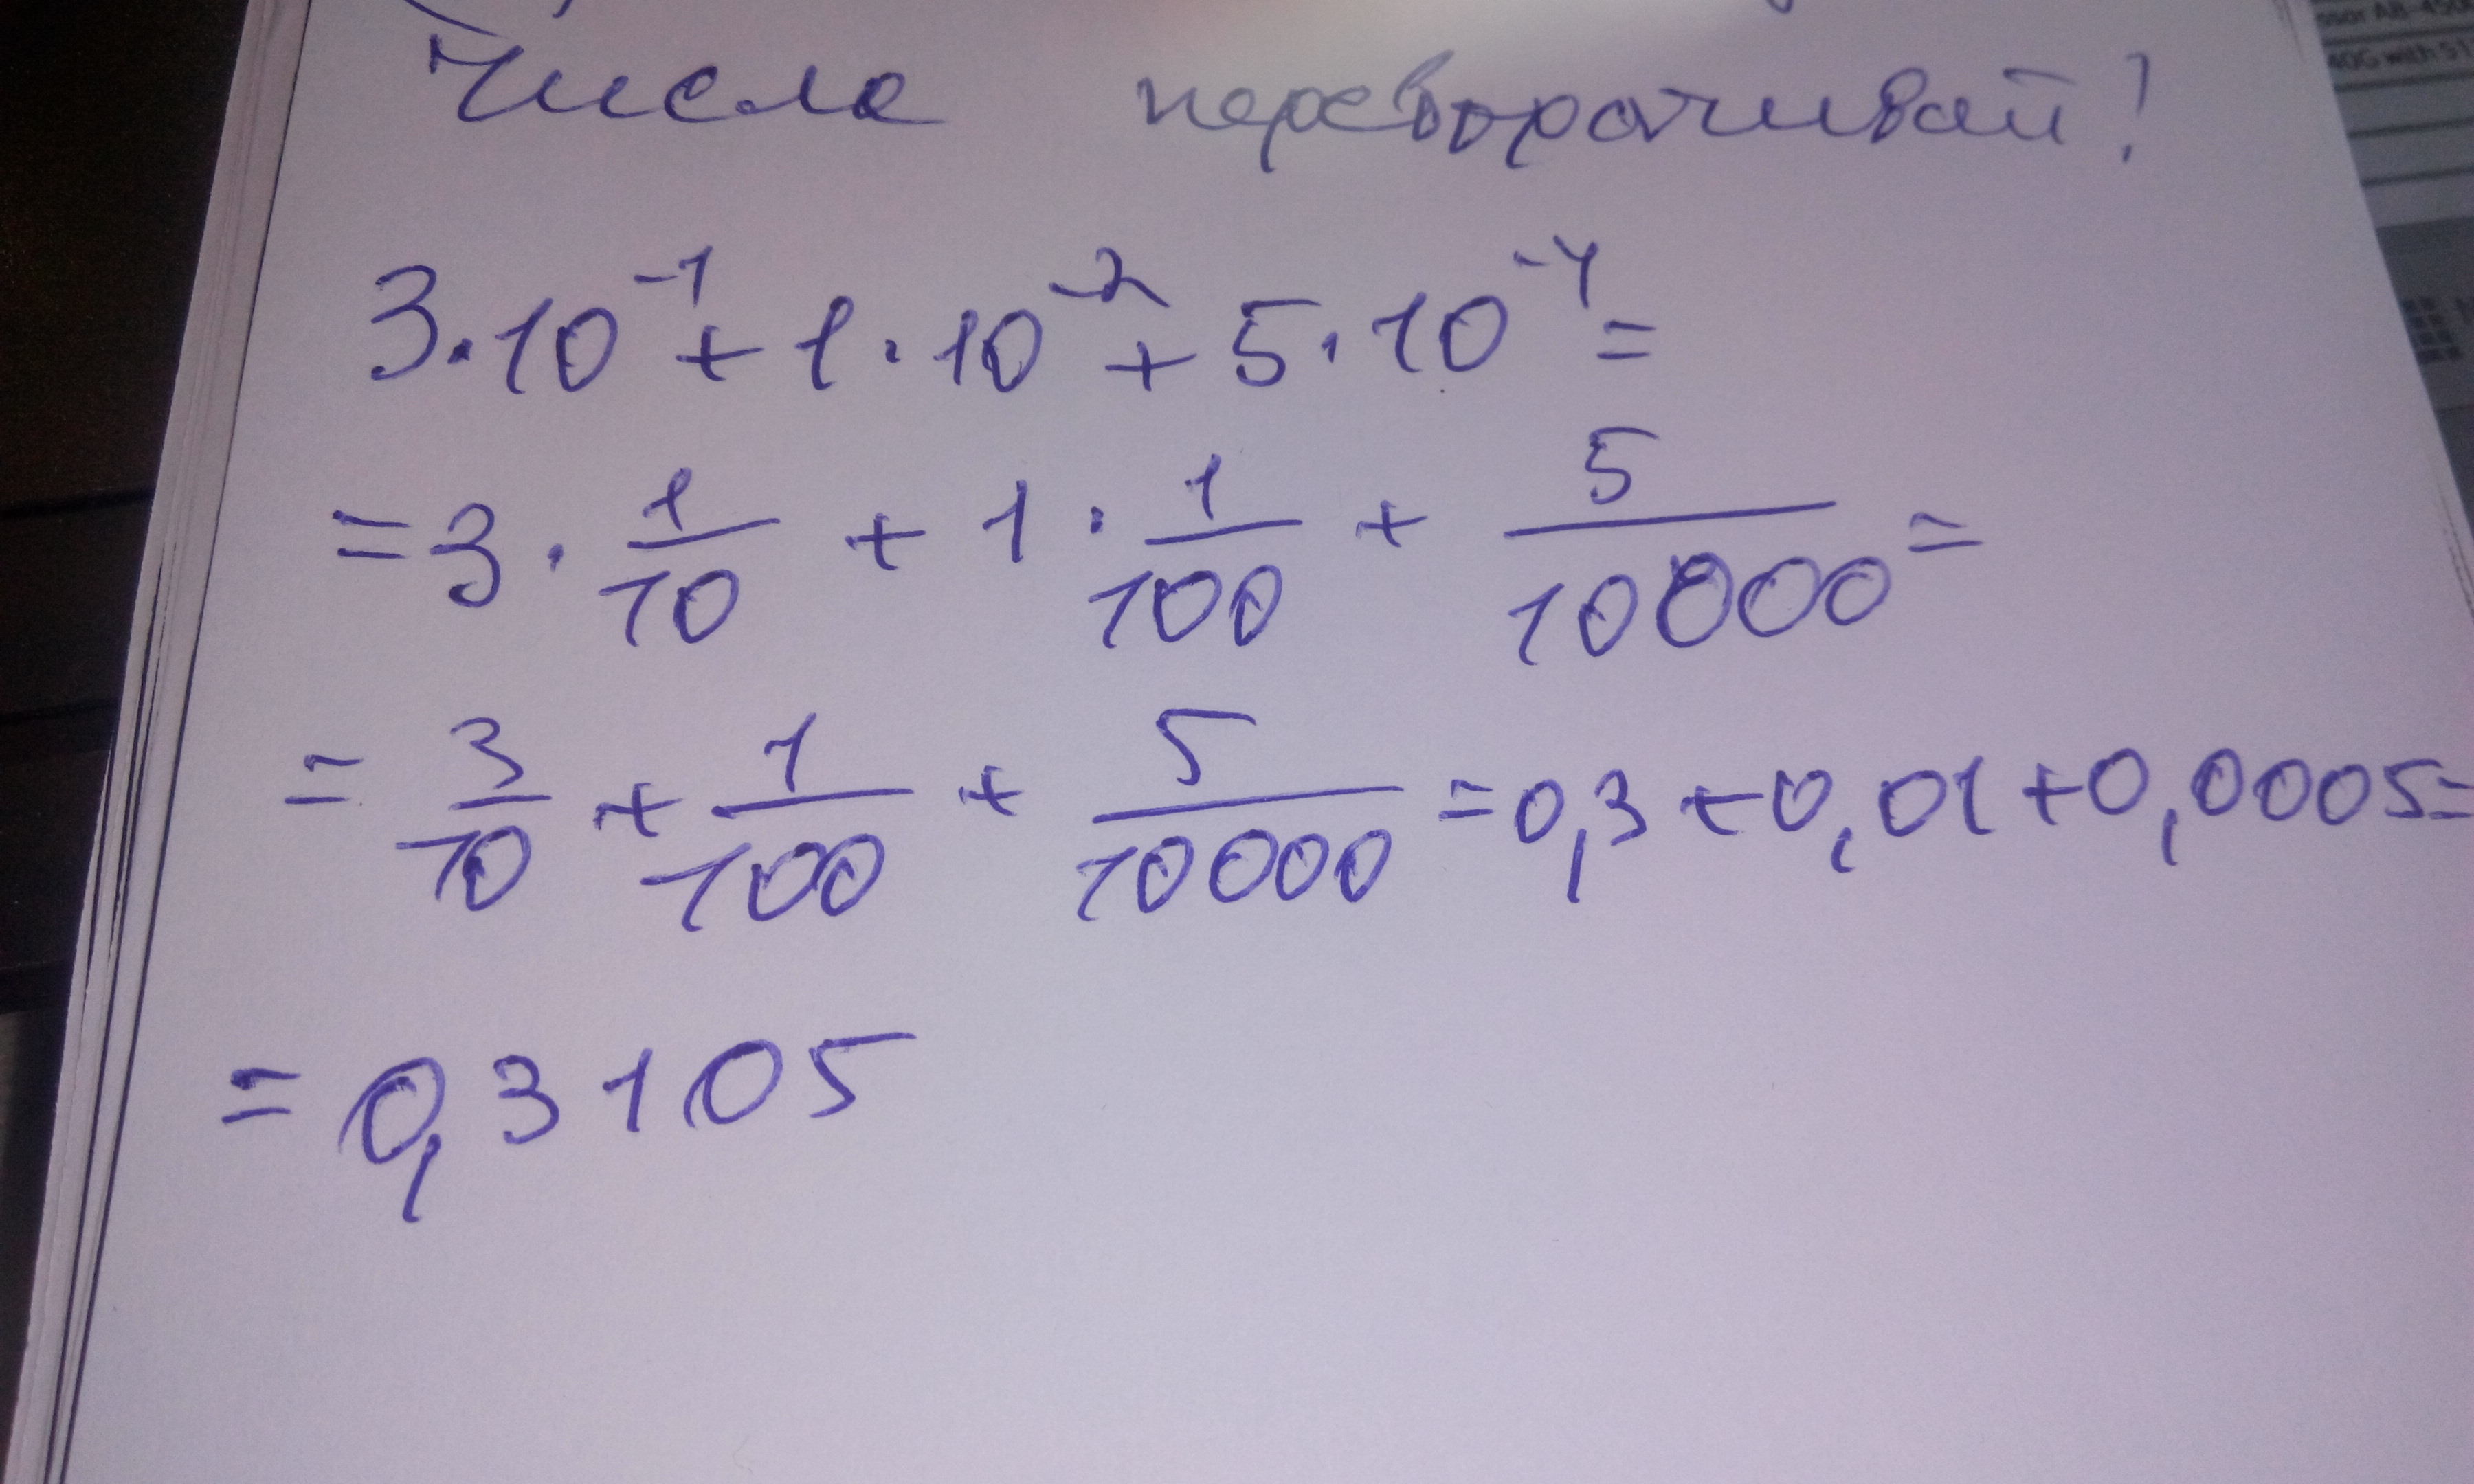 Числа переворачивай!
3·10⁻¹ + 1·10⁻² + 5·10⁻⁴ =
= 3 · 1/10 + 1 · 1/100 + 5/10000 =
= 3/10 + 1/100 + 5/10000 = 0,3 + 0,01 + 0,0005 =
= 0,3105
40G with